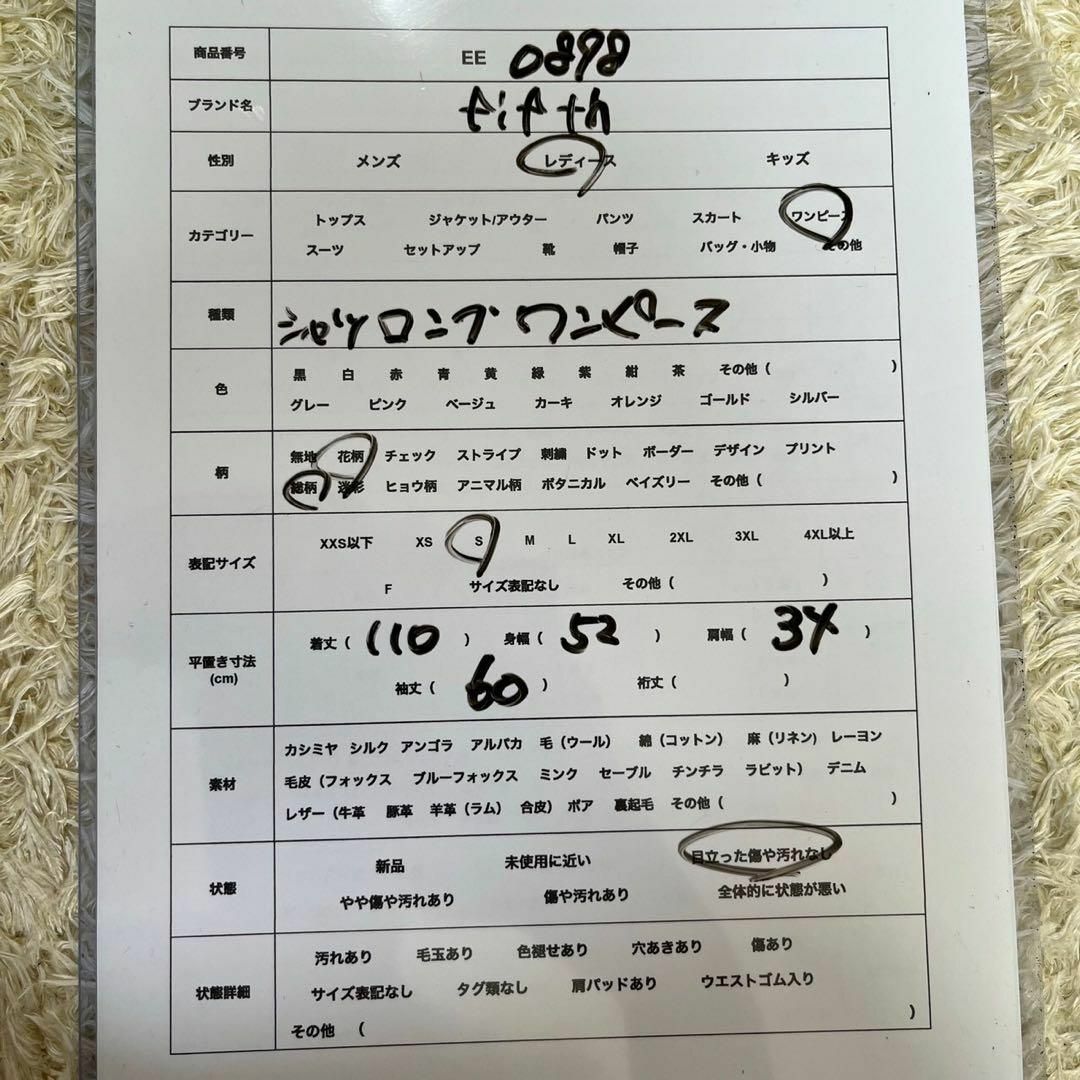 商品番号 EE 0898
ブランド名 fifth
性別 メンズ レディース キッズ
カテゴリー トップス ジャケット/アウター パンツ スカート ワンピース
スーツ セットアップ 靴 帽子 バッグ・小物 その他
種類 シャツロングワンピース
色 黒 白 赤 青 黄 緑 紫 紺 茶 その他 ( )
グレー ピンク ベージュ カーキ オレンジ ゴールド シルバー
柄 無地 花柄 チェック ストライプ 刺繍 ドット ボーダー デザイン プリント
総柄 迷彩 ヒョウ柄 アニマル柄 ボタニカル ペイズリー その他 ( )
表記サイズ XXS以下 XS S M L XL 2XL 3XL 4XL以上
F サイズ表記なし その他 ( )
平置き寸法 (cm) 着丈 ( 110 ) 身幅 ( 52 ) 肩幅 ( 34 )
袖丈 ( 60 ) 裄丈 ( )
素材 カシミヤ シルク アンゴラ アルパカ 毛 (ウール) 綿 (コットン) 麻 (リネン) レーヨン
毛皮 (フォックス ブルーフォックス ミンク セーブル チンチラ ラビット) デニム
レザー (牛革 豚革 羊革 (ラム) 合皮) ボア 裏起毛 その他 ( )
状態 新品 未使用に近い 目立った傷や汚れなし
やや傷や汚れあり 傷や汚れあり 全体的に状態が悪い
状態詳細 汚れあり 毛玉あり 色褪せあり 穴あきあり 傷あり
サイズ表記なし タグ類なし 肩パッドあり ウエストゴム入り
その他 ( )